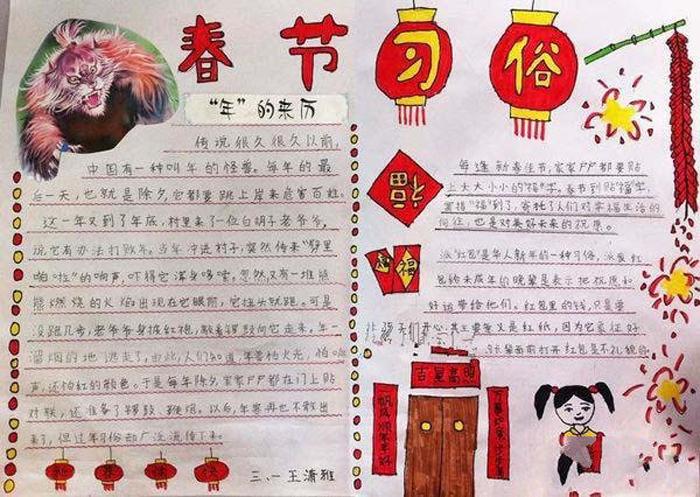 春节
习俗
“年”的来历
传说,很久很久以前,
中国有一种叫年的怪兽。每年的最
后一天,也就是除夕,它都要跳上岸来危害百姓。
这一年又到了年底,村里来了一位白胡子老爷爷,
说它有办法打败年。当年冲进村子,突然传来“劈里
啪啦”的响声,吓得它浑身哆嗦。忽然,又有一堆熊
熊燃烧的火焰出现在它眼前,它扭头就跑。可是
没跑几步,老爷爷身披红袍,敲着锣鼓向它走来。年一
溜烟的地逃走了,由此,人们知道,年害怕火光,怕响
声,还怕红的颜色。于是每年除夕,家家户户都在门上贴
对联,还准备了锣鼓、鞭炮。以后,年兽再也不敢出
来了,但过年习俗却广泛流传下来。
三、一王潇雅
福
福
每逢新春佳节,家家户户都要贴
上大大小小的“福”字。春节到贴“福”字,
寄托了人们对幸福生活的
向往,也是对美好未来的祝愿。
派“红包”是华人新年的一种习俗,派发红
包给未成年的晚辈是表示把祝愿和
好运带给他们。红包里的钱,只是要
让孩子们开心,其主要意义是红纸,因为它象征好
长辈面前打开红包是不礼貌的
吉星高照